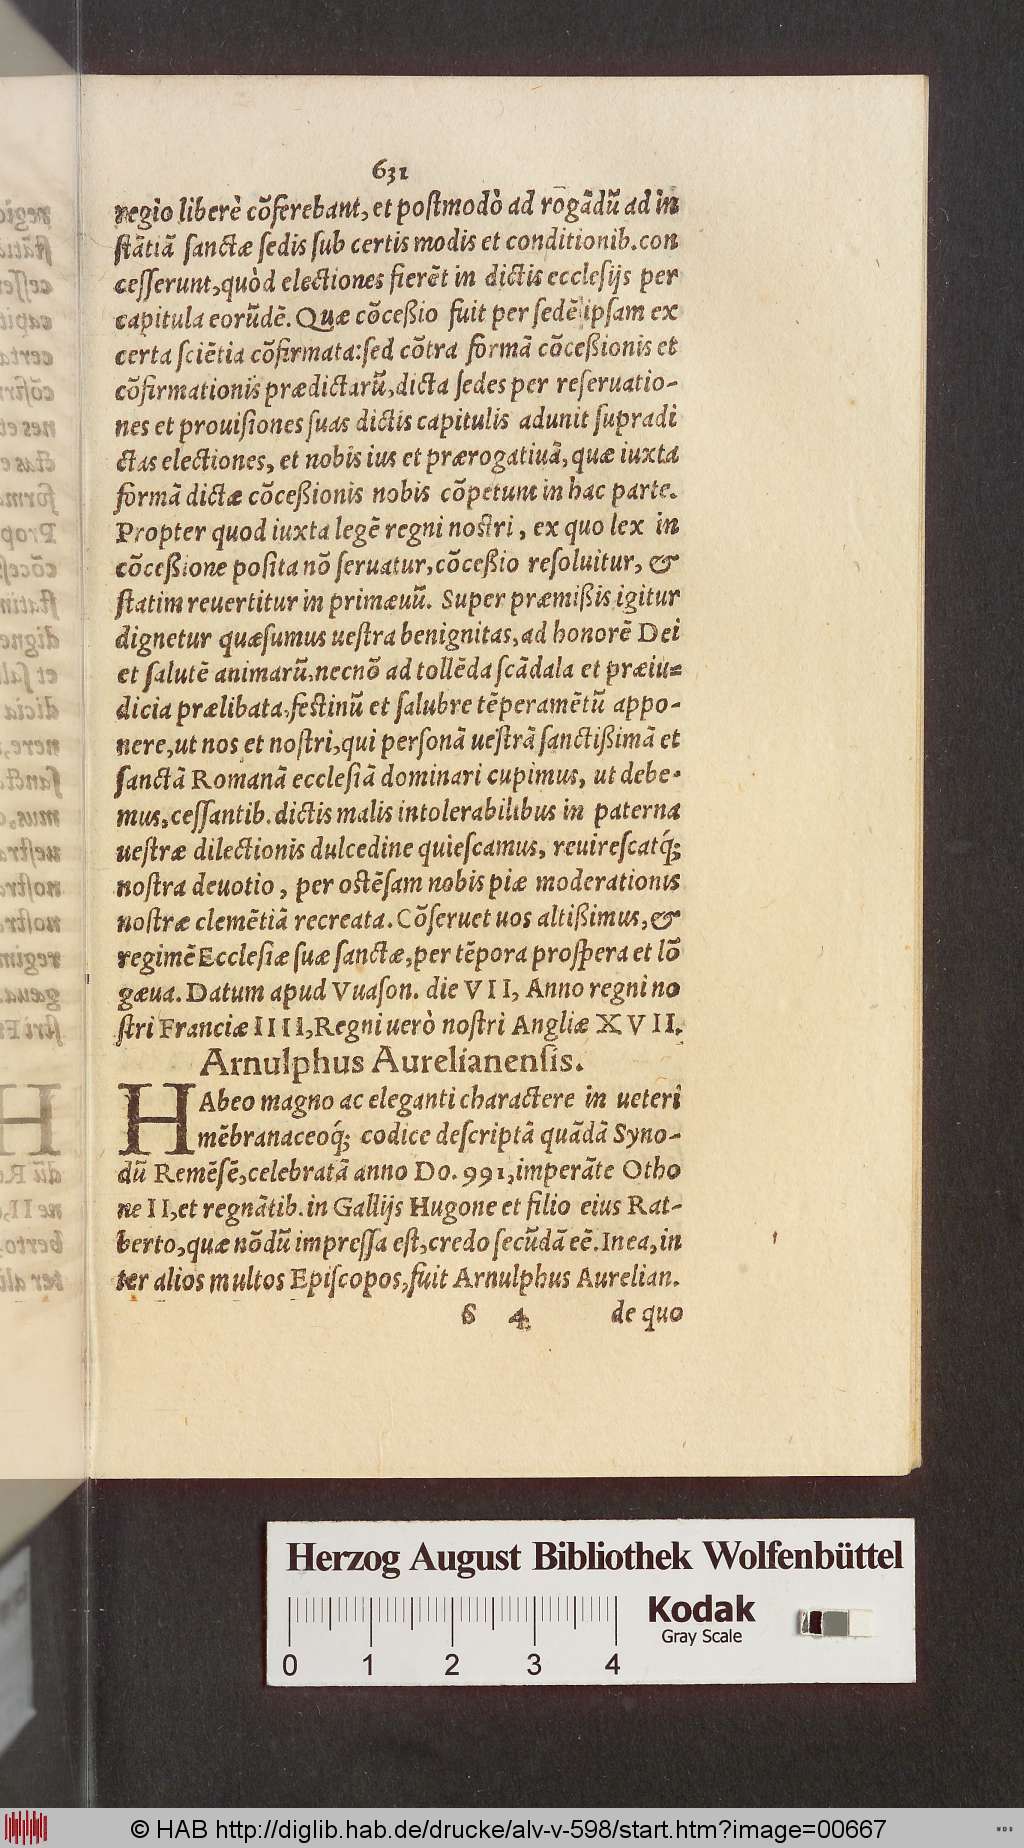 631
regio liberè cõferebant, et poſtmodò ad rogãdũ ad in
ſtãtiã ſanctæ ſedis ſub certis modis et conditionib. con
ceſſerunt, quòd electiones fierẽt in dictis eccleſijs per
capitula eorũdẽ. Quæ cõceßio fuit per ſedẽ ipſam ex
certa ſciẽtia cõfirmata: ſed cõtra formã cõceßionis et
cõfirmationis prædictarũ, dicta ſedes per reſeruatio-
nes et prouiſiones ſuas dictis capitulis adunit ſupradi
ctas electiones, et nobis ius et prærogatiuã, quæ iuxta
formã dictæ cõceßionis nobis cõpetunt in hac parte.
Propter quod iuxta legẽ regni noſtri, ex quo lex in
cõceßione poſita nõ ſeruatur, cõceßio reſoluitur, &
ſtatim reuertitur in primæuũ. Super præmißis igitur
dignetur quæſumus ueſtra benignitas, ad honorẽ Dei
et ſalutẽ animarũ, necnõ ad tollẽda ſcãdala et præiu-
dicia prælibata, feſtinũ et ſalubre tẽperamẽtũ appo-
nere, ut nos et noſtri, qui perſonã ueſtrã ſanctißimã et
ſanctã Romanã eccleſiã dominari cupimus, ut debe-
mus, ceſſantib. dictis malis intolerabilibus in paterna
ueſtræ dilectionis dulcedine quieſcamus, reuireſcatq́;
noſtra deuotio, per oſtẽſam nobis piæ moderationis
noſtræ clemẽtiã recreata. Cõſeruet uos altißimus, &
regimẽ Eccleſiæ ſuæ ſanctæ, per tẽpora proſpera et lõ
gæua. Datum apud Vuaſon. die VII, Anno regni no
ſtri Franciæ IIII, Regni uerò noſtri Angliæ XVII.
Arnulphus Aurelianenſis.
HAbeo magno ac eleganti charactere in ueteri
mẽbranaceoq́; codice deſcriptã quãdã Syno-
dũ Remẽſẽ, celebratã anno Do. 991, imperãte Otho
ne II, et regnãtib. in Gallijs Hugone et filio eius Rat-
berto, quæ nõdũ impreſſa eſt, credo ſecũdã eẽ. In ea, in
ter alios multos Epiſcopos, fuit Arnulphus Aurelian.
S 4 de quo
Herzog August Bibliothek Wolfenbüttel
Kodak
Gray Scale
0 1 2 3 4
© HAB http://diglib.hab.de/drucke/alv-v-598/start.htm?image=00667